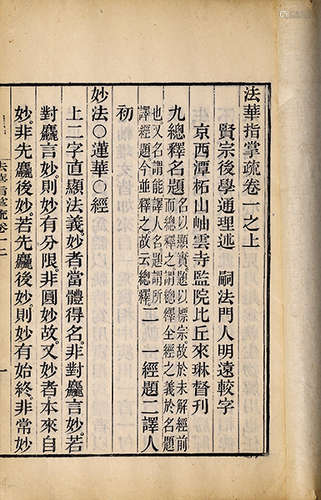 法華指掌疏卷一之上
賢宗後學通理述　嗣法門人明遠較字
京西潭柘山岫雲寺監院比丘來琳督刊
九總釋名題名以顯實題以標宗故於未解經前而總釋之謂總釋全經之義於名題
也又名謂能譯人名題謂所譯經題今並釋之故云總釋二　一經題二譯人
初
妙法○蓮華○經
上二字直顯法義妙者當體得名非對麤言妙若
對麤言妙則妙有分限非圓妙故又妙者本來自
妙非先麤後妙若先麤後妙則妙有始終非常妙
一